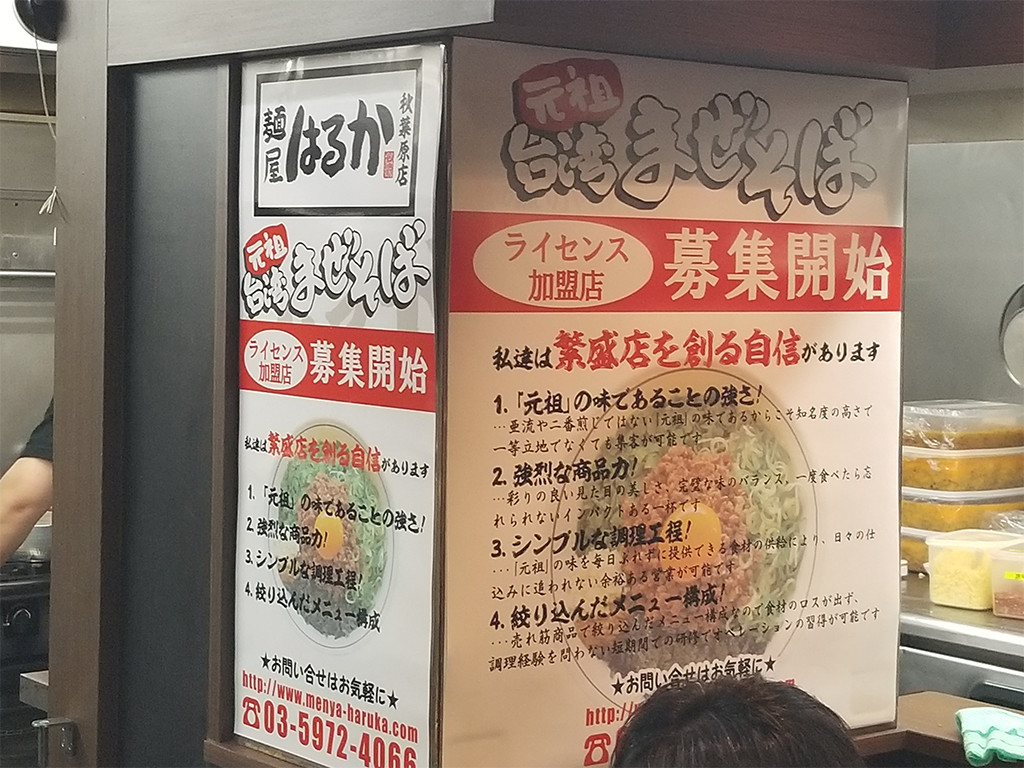 麺屋
はるか
秋葉原店
元祖
台湾まぜそば
ライセンス
加盟店
募集開始
私達は繁盛店を創る自信があります
1. 「元祖」の味であることの強さ!
2. 強烈な商品力!
3. シンプルな調理工程!
4. 絞り込んだメニュー構成
★お問い合せはお気軽に★
http://www.menya-haruka.com
☎03-5972-4066
元祖
台湾まぜそば
ライセンス
加盟店
募集開始
私達は繁盛店を創る自信があります
1. 「元祖」の味であることの強さ!
…亜流や二番煎じではない「元祖」の味であるからこそ知名度の高さで
一等立地でなくても集客が可能です
2. 強烈な商品力!
…彩りの良い見た目の美しさ、完璧な味のバランス、一度食べたら忘
れられないインパクトある一杯です
3. シンプルな調理工程!
…「元祖」の味を毎日ぶれずに提供できる食材の供給により、日々の仕
込みに追われない余裕ある営業が可能です
4. 絞り込んだメニュー構成!
…売れ筋商品で絞り込んだメニュー構成なので食材のロスが出ず、
調理経験を問わない短期間での研修でオペレーションの習得が可能です
★お問い合せはお気軽に★
http:/
☎